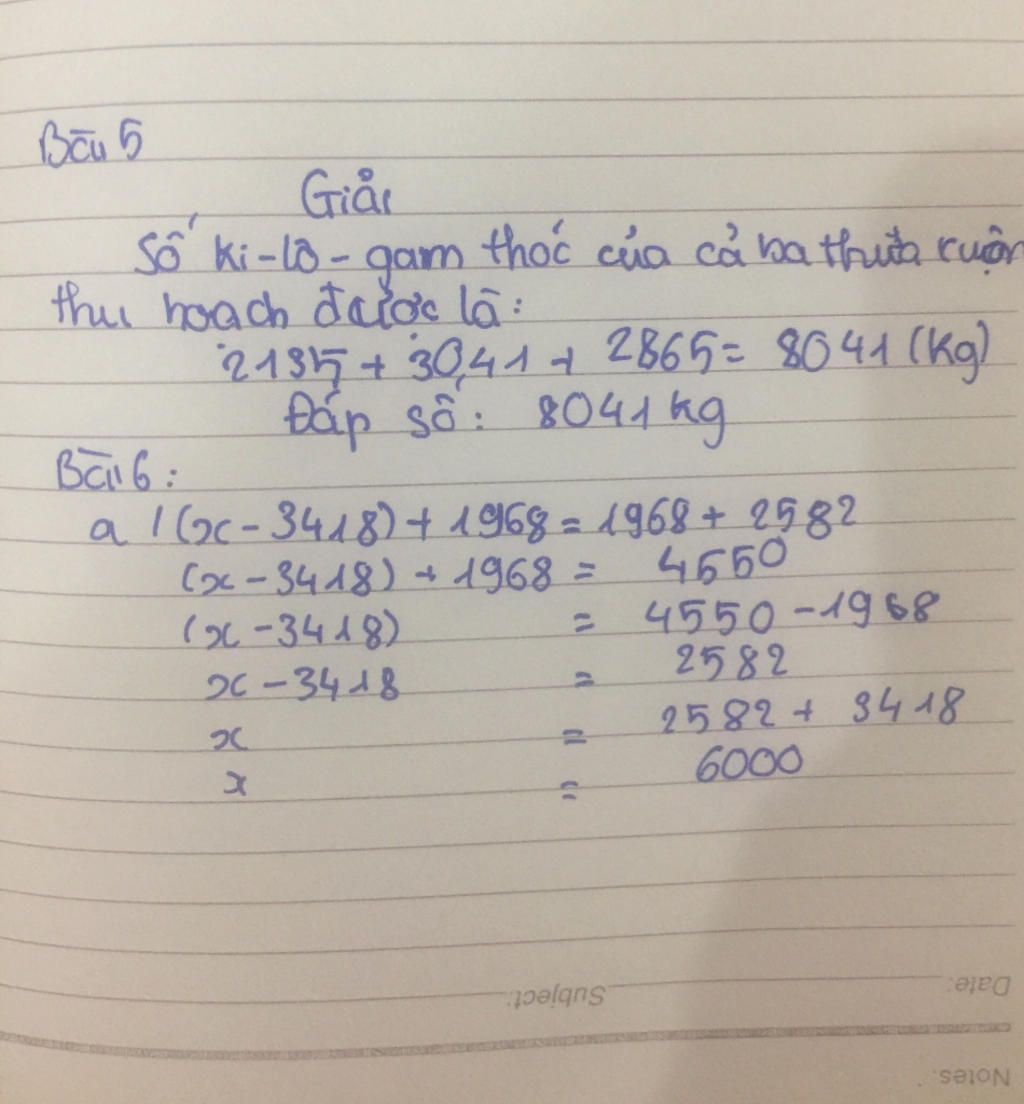 Bài 5
Giải
Số ki-lô-gam thóc của cả ba thửa ruộn
thu hoạch được là:
2135 + 3041 + 2865 = 8041 (kg)
Đáp số: 8041 kg
Bài 6:
a / (x - 3418) + 1968 = 1968 + 2582
(x - 3418) + 1968 = 4550
(x - 3418) = 4550 - 1968
x - 3418 = 2582
x = 2582 + 3418
x = 6000
Date:
Subject:
Notes: